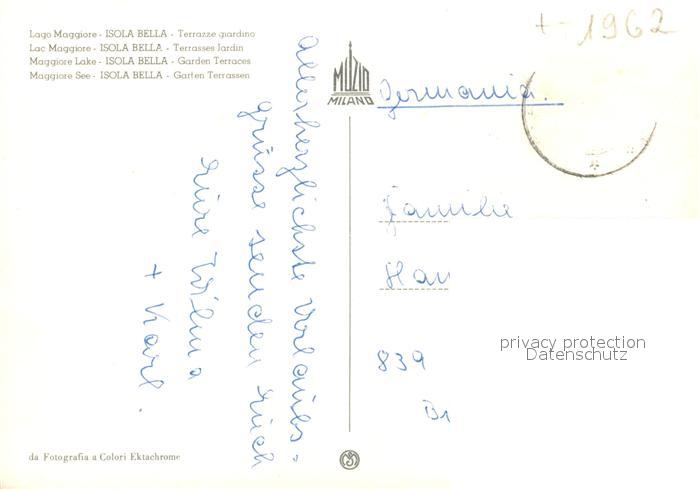 Lago Maggiore - ISOLA BELLA - Terrazze giardino
Lac Maggiore - ISOLA BELLA - Terrasses Jardin
Maggiore Lake - ISOLA BELLA - Garden Terraces
Maggiore See - ISOLA BELLA - Garten Terrassen
allerherzlichste Urlaubs-
grüsse senden Euch
Eure Wilma
+ Karl.
MUZIO
MILANO
+ 1962
Germania.
Familie
Han
839
privacy protection
Datenschutz
da Fotografia a Colori Ektachrome